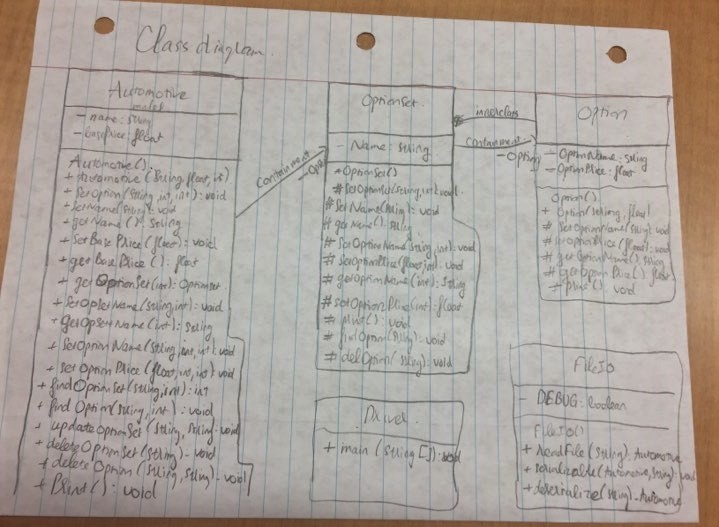 Class diagram.
Automotive
- name: string
- basePrice: float
Automotive();
+ Automotive(String, float, int)
+ SetOption(String, int, int): void
+ SetName(String): void
+ getName(): string
+ SetBasePrice(float): void
+ getBasePrice(): float
+ getOptionSet(int): OptionSet
+ SetOpSetName(string, int): void
+ getOpSetName(int): string
+ SetOptionName(string, int, int): void
+ SetOptionPrice(float, int, int): void
+ findOptionSet(string, int): int
+ find Option(string, int): void
+ updateOptionSet(string, string): void
+ deleteOptionSet(string): void
+ deleteOption(string, string): void
+ Print(): void
Containment
OptionSet.
- Name: string
+ OptionSet()
# SetOptionSet(string, int): void
# SetName(string): void
# getName(): string
# SetOptionName(string, int): void
# SetOptionPrice(float, int): void
# getOptionName(int): string
# setOptionPrice(int): float
# print(): void
# findOption(string)
# delOption(string): void
Containment
- Option
Option
- OptionName: string
- OptionPrice: float
Option()
+ Option(string, float)
# SetOptionName(string): void
# SetOptionPrice(float): void
# getOptionName(): string
# getOptionPrice(): float
# print(): void
Driver
+ main(String []): void
FileIO
- DEBUG: boolean
FileIO()
+ readFile(string): Automotive
+ serializable(Automotive, string): void
+ deserialize(string): Automotive